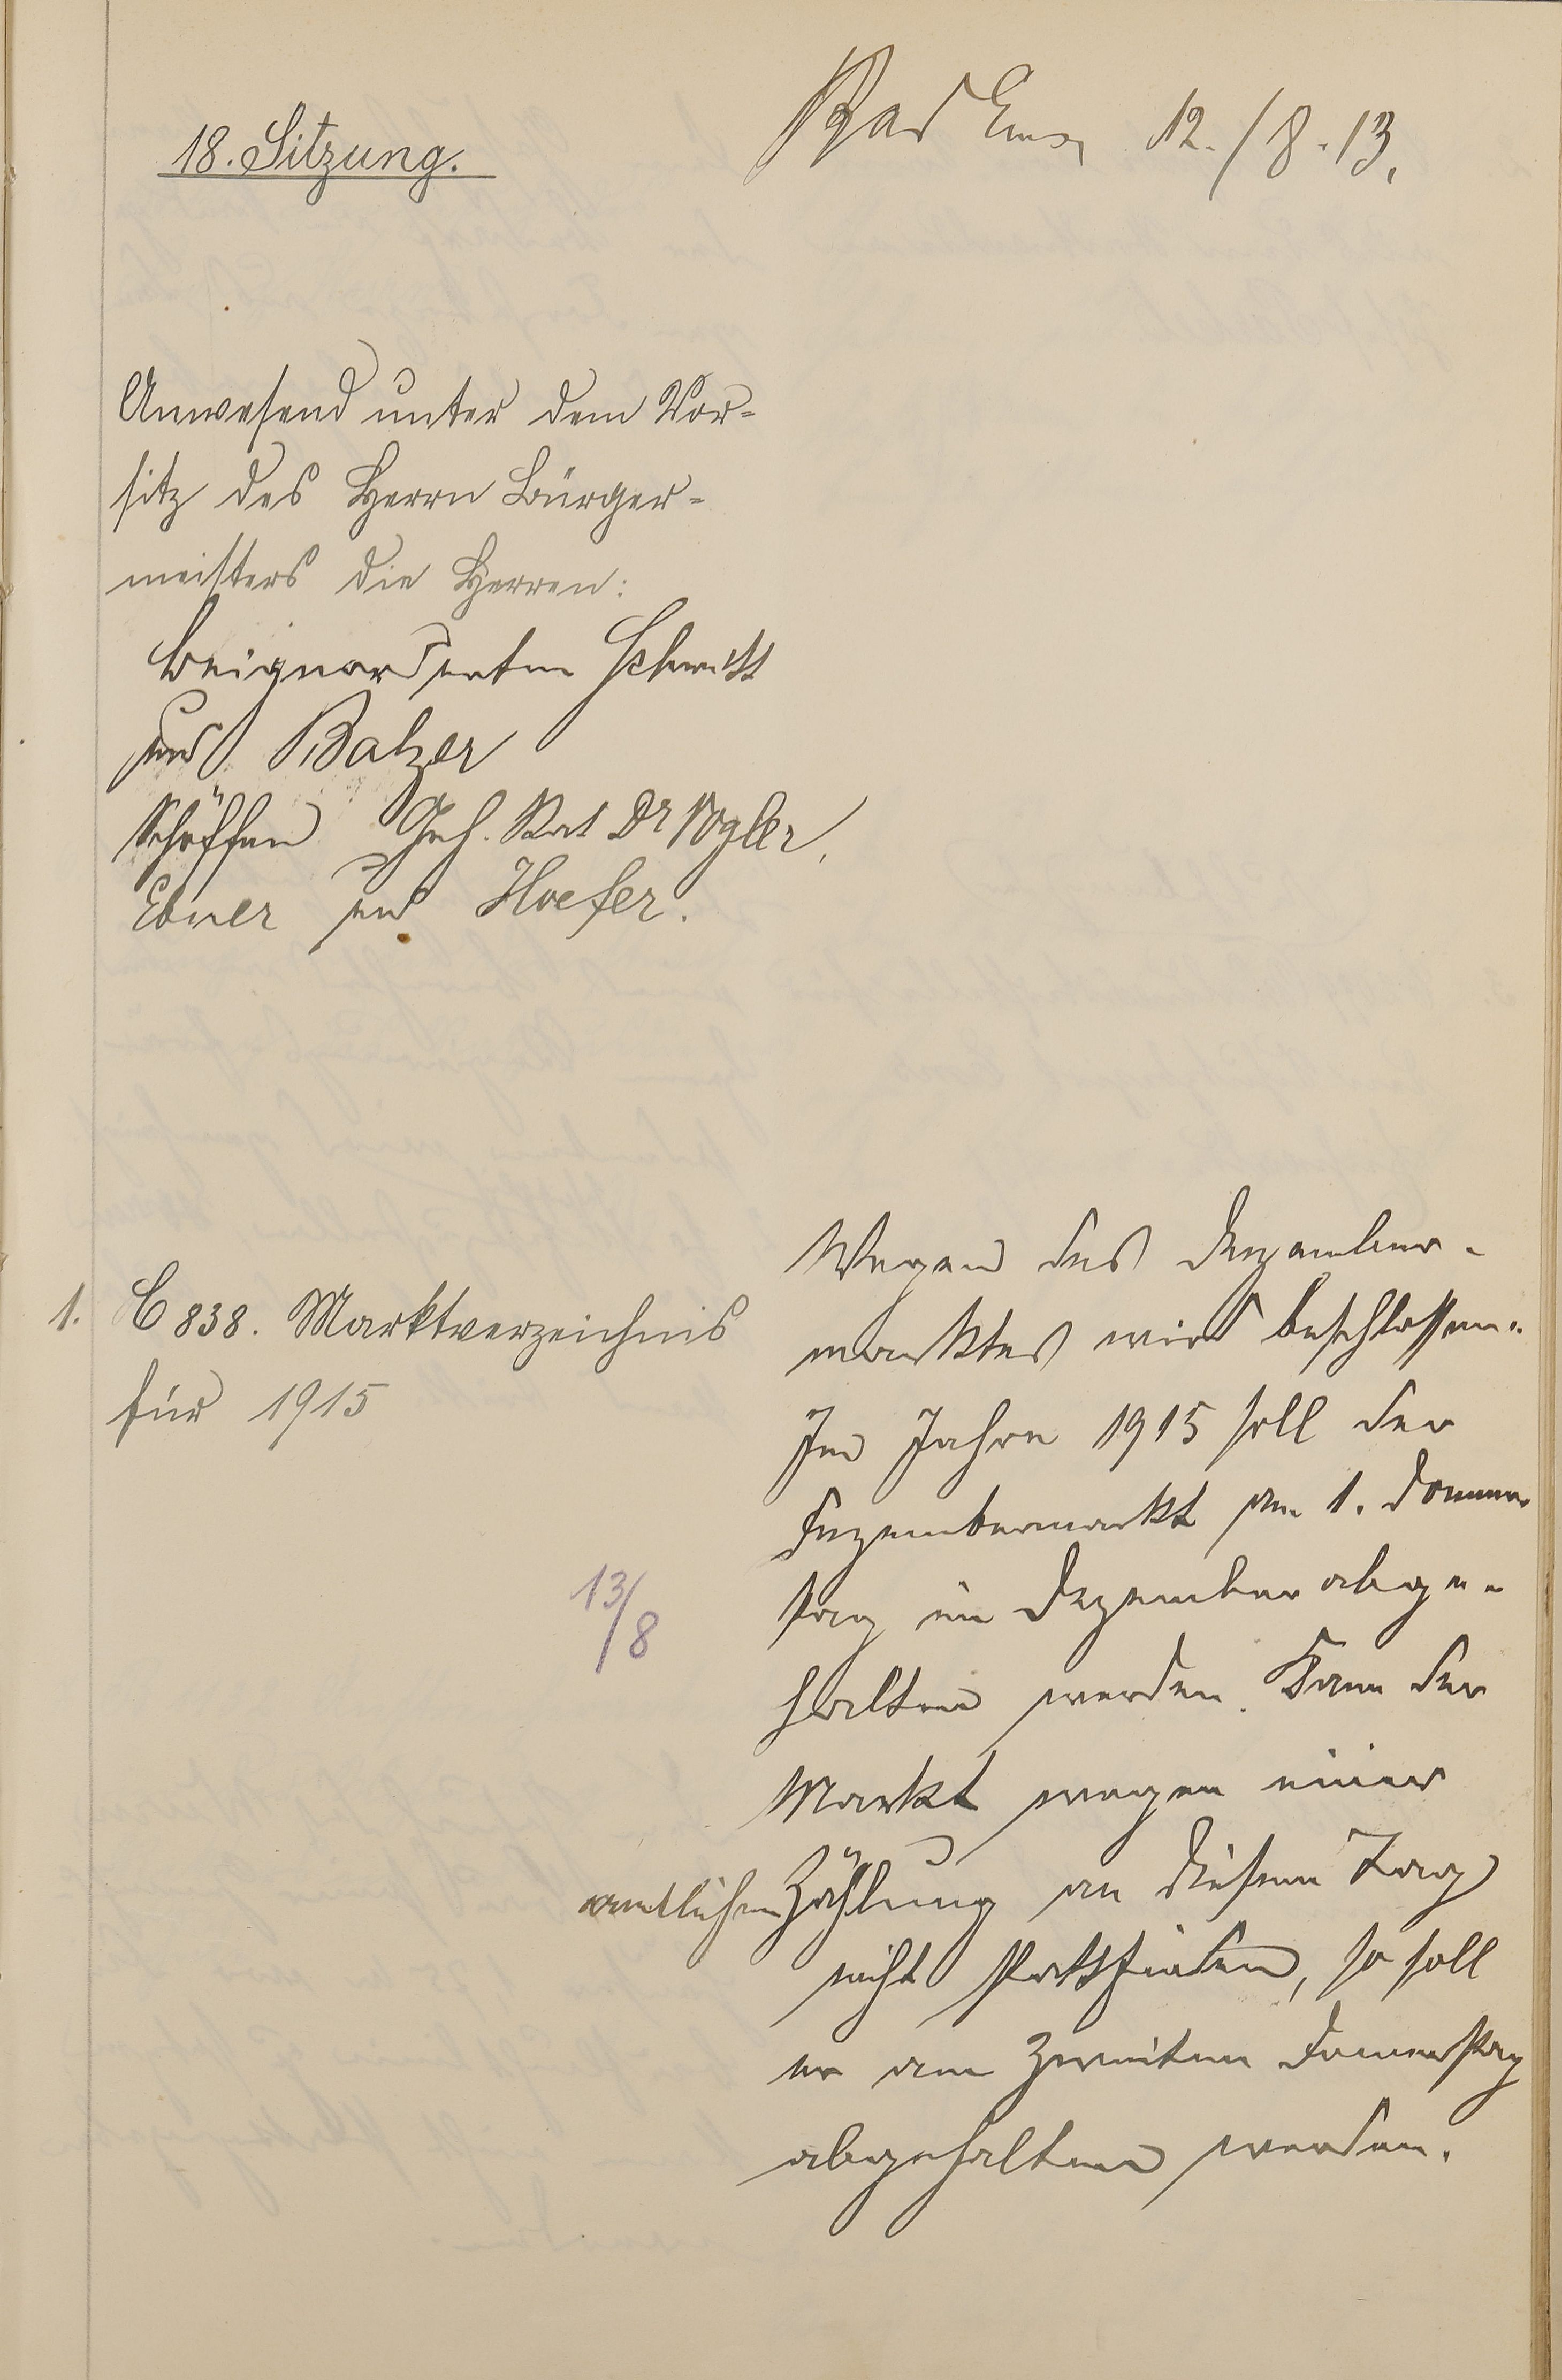 18. Sitzung.
Bad Ems, 12./8.13.
Anwesend unter dem Vor-
sitz des Herrn Bürger-
meisters die Herren:
Beigeordneten Schmitt
und Balzer
Schöffen Geh. Rat Dr Vogler,
Ebner und Hoefer.
1. C 838. Marktverzeichnis
für 1915
13/8
Wegen des Dezember-
marktes wird beschlossen:
Im Jahre 1915 soll der
Dezembermarkt am 1. Donners
tag im Dezember abge-
halten werden. Kann der
Markt wegen einer
amtlichen Zählung an diesem Tag
nicht stattfinden, so soll
er am zweiten Donnerstag
abgehalten werden.